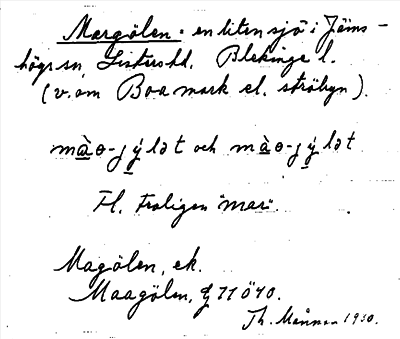 Margölen = en liten sjö i Jäms-
högs sn, Listers hd, Blekinge l.
(v. om Boamark el. ströbyn).
màɵ-jýlət och màɵ-jýlət
Fl. troligen "mar".
Magölen, ek.
Maagölen, G 11 ö 40.
Th. 1930.